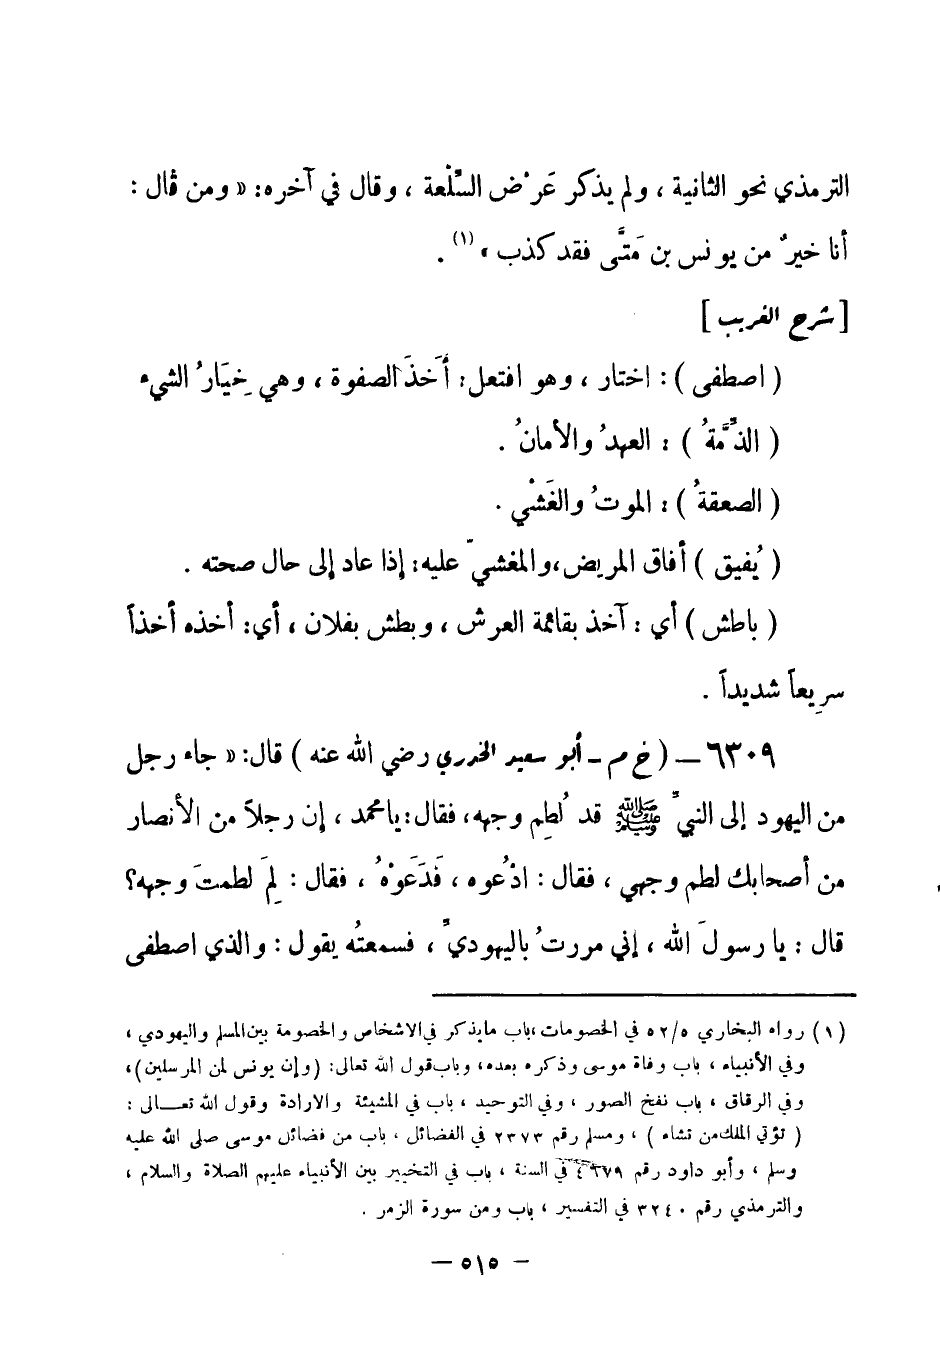 الترمذي نحو الثانية ، ولم يذكر عَرْض السِّلْعة ، وقال في آخره: « ومن قال :
أنا خيرٌ من يونس بن مَتَّى فقد كذب » (١) .
[ شرح الغريب ]
( اصطفى ) : اختار ، وهو افتعل: أَخذَ الصفوة ، وهي خِيَارُ الشيء
( الذِّمَّةُ ) : العهدُ والأمانُ .
( الصعقةُ ) : الموتُ والغَشْي .
( يُفيق ) أفاق المريض، والمغشيّ عليه: إذا عاد إلى حال صحته .
( باطش ) أي : آخذ بقائمة العرش ، وبطش بفلان ، أي: أخذه أخذاً
سريعاً شديداً .
٦٣٠٩ – ( خ م - أبو سعيد الخدري رضي الله عنه ) قال: « جاء رجل
من اليهود إلى النبيِّ ﷺ قد لُطِم وجهه، فقال: يا محمد ، إن رجلاً من الأنصار
من أصحابك لطم وجهي ، فقال : ادْعوه ، فَدَعَوْهُ ، فقال : لِمَ لطمتَ وجهه؟
قال : يا رسولَ الله ، إني مررتُ باليهوديِّ ، فسمعتُه يقول : والذي اصطفى
(١) رواه البخاري ٥/٥٢ في الخصومات، باب مايذكر في الاشخاص والخصومة بين المسلم واليهودي ،
وفي الأنبياء ، باب وفاة موسى وذكره بعده، وباب قول الله تعالى: (وإن يونس لمن المرسلين)،
وفي الرقاق ، باب نفخ الصور ، وفي التوحيد ، باب في المشيئة والارادة وقول الله تعـــالى :
( تؤتي الملك من تشاء ) ، ومسلم رقم ٢٣٧٣ في الفضائل ، باب من فضائل موسى صلى الله عليه
وسلم ، وأبو داود رقم ٤٦٧٩ في السنة ، باب في التخيير بين الأنبياء عليهم الصلاة والسلام ،
والترمذي رقم ٣٢٤٠ في التفسير ، باب ومن سورة الزمر .
– ٥١٥ –